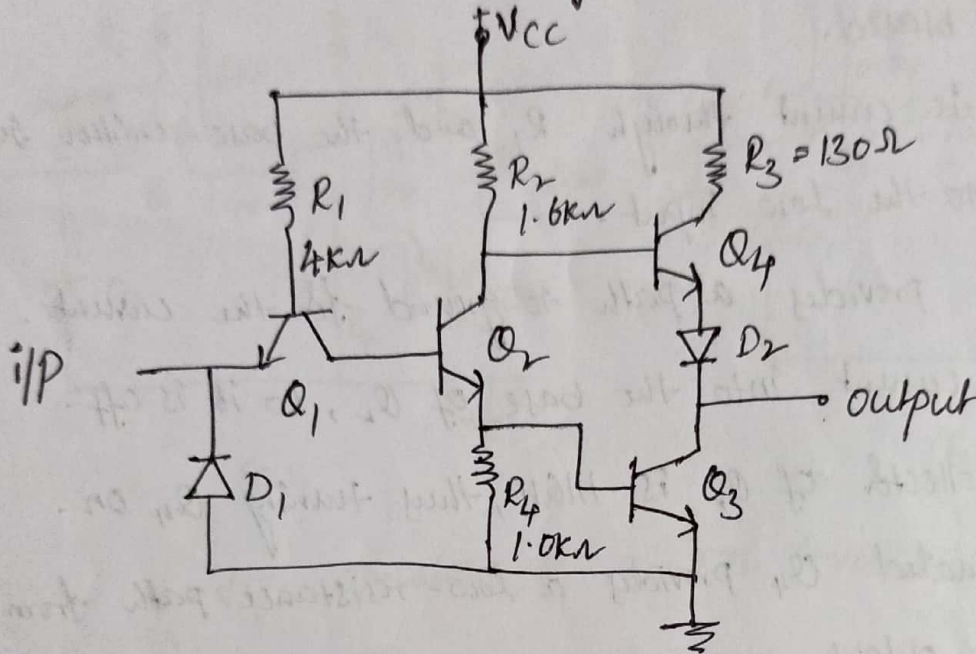 +VCC
R1
4KΩ
R2
1.6KΩ
R3 = 130Ω
Q4
i/P
Q1
Q2
D2
output
D1
R4
1.0KΩ
Q3